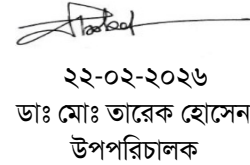 ২২-০২-২০২৬
ডাঃ মোঃ তারেক হোসেন
উপপরিচালক